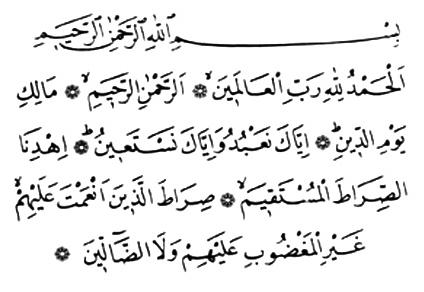 بِسْمِ اللهِ الرَّحْمٰنِ الرَّحِيمِ
اَلْحَمْدُ لِلّٰهِ رَبِّ الْعَالَمِينَۙ ۞ اَلرَّحْمٰنِ الرَّحِيمِۙ ۞ مَالِكِ
يَوْمِ الدِّينِۜ ۞ اِيَّاكَ نَعْبُدُ وَاِيَّاكَ نَسْتَعِينُۜ ۞ اِهْدِنَا
الصِّرَاطَ الْمُسْتَقِيمَۙ ۞ صِرَاطَ الَّذِينَ اَنْعَمْتَ عَلَيْهِمْۙ
غَيْرِ الْمَغْضُوبِ عَلَيْهِمْ وَلَا الضَّٓالِّينَ ۞